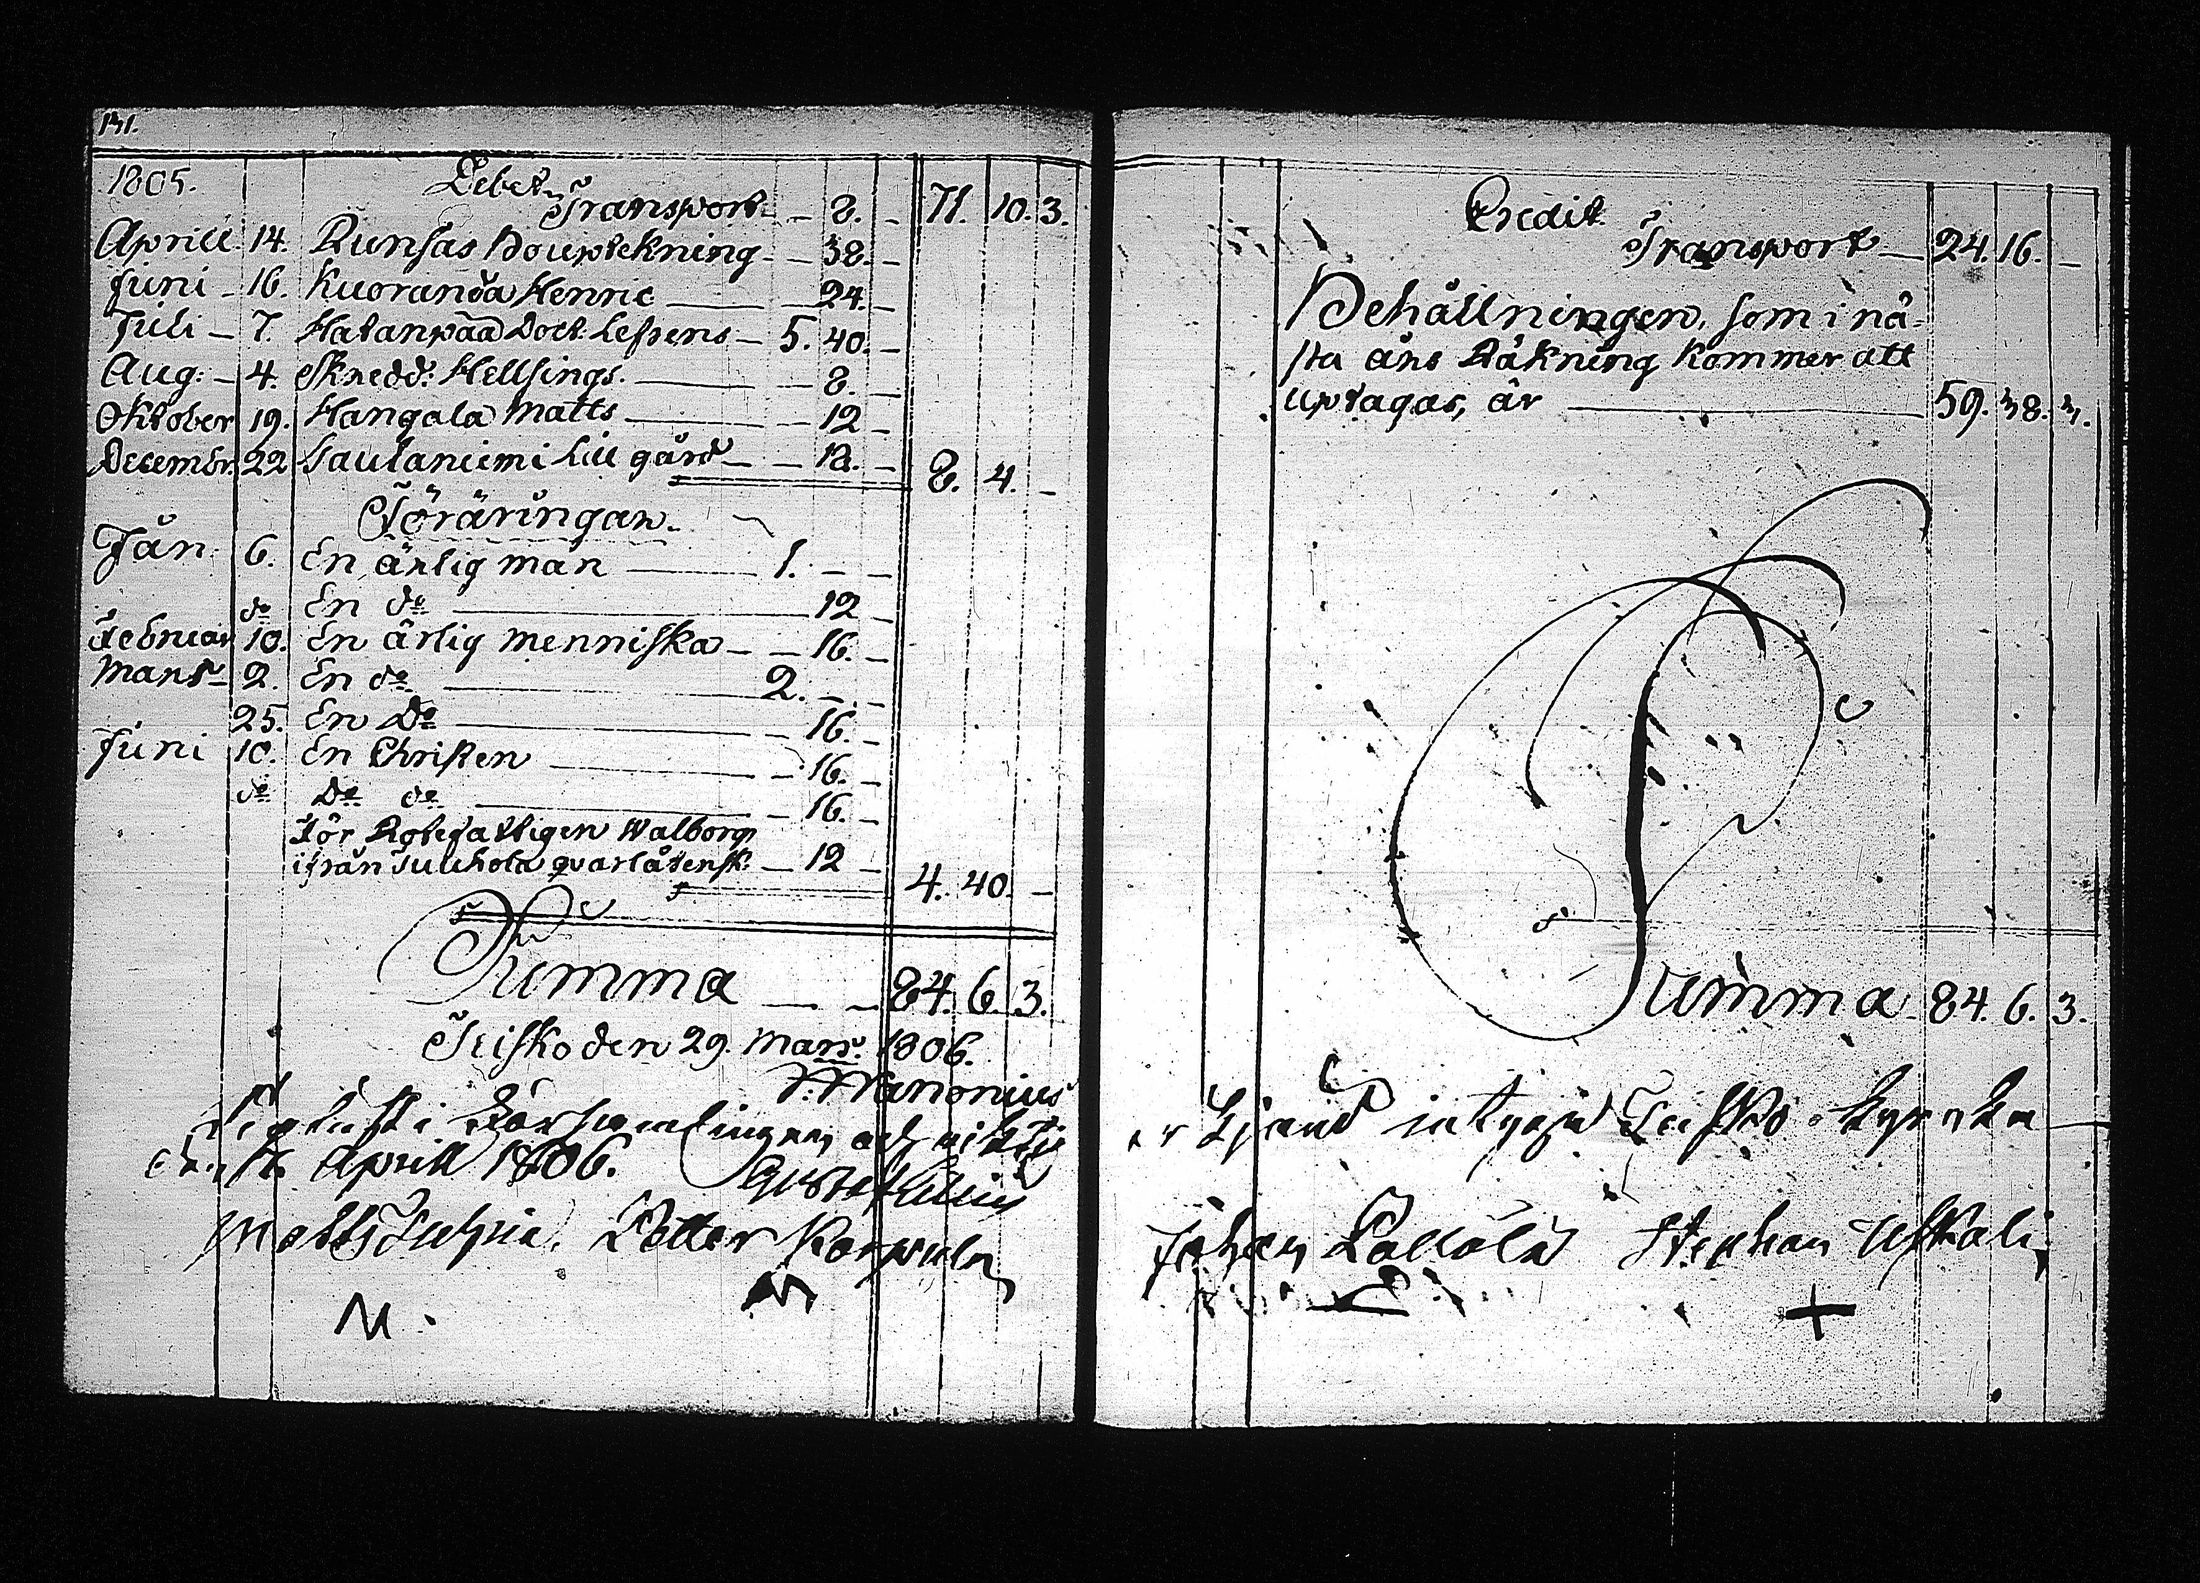 131.
1805. Debet. Transport — 8. — 71. 10. 3.
Aprill 14. Runsas Bouptekning — — 38. —
Juni — 16. Kuoranda Henric — — 24. —
Juli — 7. Hatanpää Doct. Lefrens — 5. 40. —
Aug: — 4. Skredd: Hellsings. — — 8. —
Oktober 19. Hangala Matts — — 12 —
Decembr. 22 Saulaniemi Lill gård — — 18. — 8. 4. —
Föräringar.
Jan: 6. En ärlig man — 1. — —
do En do — 12 —
Februar 10. En ärlig menniska — — 16. —
Mars — 2. En do — 2. — —
25. En Do — 16. —
Juni 10. En Christen — — 16. —
do Do do — — 16. —
För Rotefattigen Walborgs
ifrån Tulihola qvarlåtensk: — 12 — 4. 40. —
Summa — — 84. 6. 3.
Teisko den 29. Mars. 1806.
Upläst i Församlingen och riktig
Aprill 1806.
Matts Petter Korpula
M.
Credit.
Transport — 24. 16. —
Behållningen, som i nä-
sta års Räkning kommer att
uptagas, är — 59. 38. 3.
Summa. 84. 6. 3.
er kjänd intygar Teisko kyrcka
Johan Stephan Uskali
+